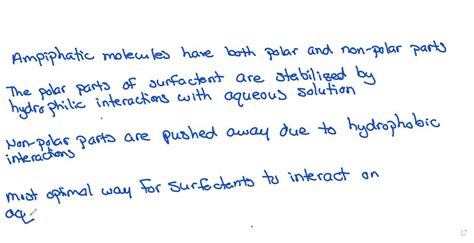 Ampiphatic molecules have both polar and non-polar parts
The polar parts of surfactent are stabilized by
hydrophilic interactions with aqueous solution
Non-polar parts are pushed away due to hydrophobic
interactions
most optimal way for surfectants to interact on
aq